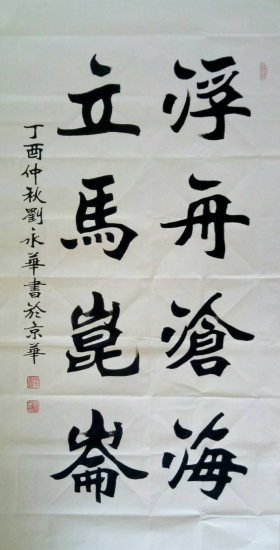 浮舟滄海
立馬崑崙
丁酉仲秋劉永華書於京華